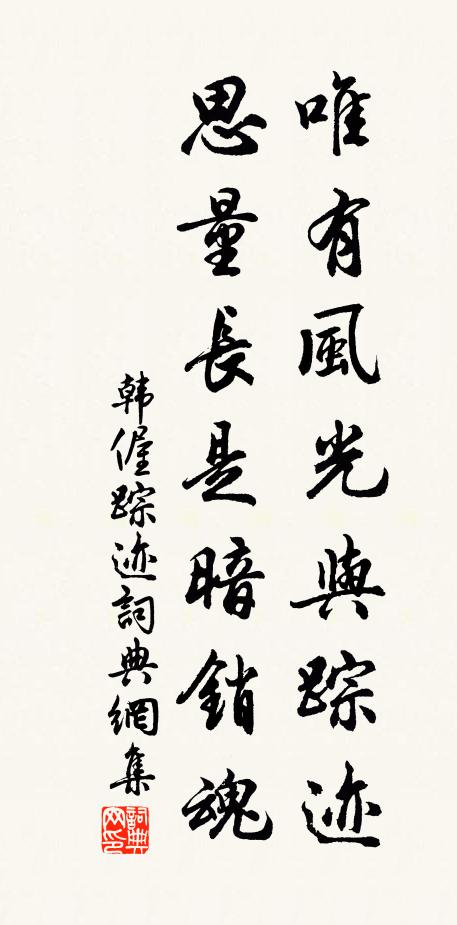 唯有風光與踪迹
思量長是暗銷魂
韩偓踪迹詞典網集
詞典网印